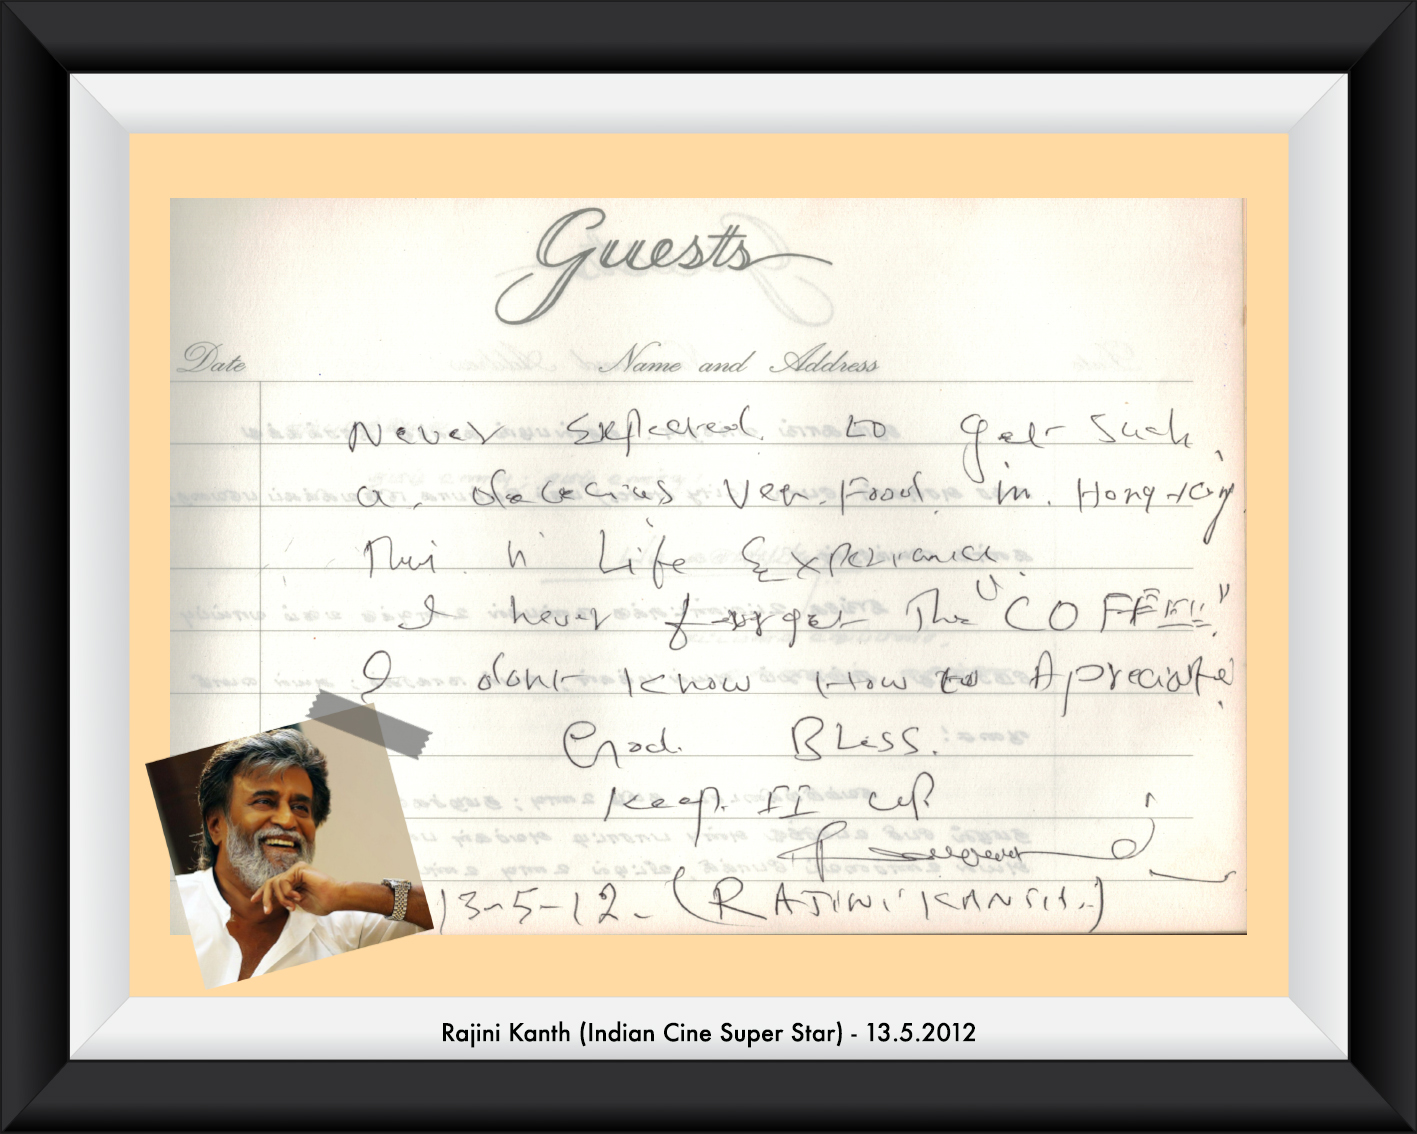 Guests
Date Name and Address
Never Expected to get such
a. delecious Veg. Food in. Hong-Kong.
This is Life Experiance.
I never forget The "COFFEE".
I dont know How to Apreciate.
God. Bless.
Keep. IT up
13-5-12. (RAJINIKANTH.)
Rajini Kanth (Indian Cine Super Star) - 13.5.2012